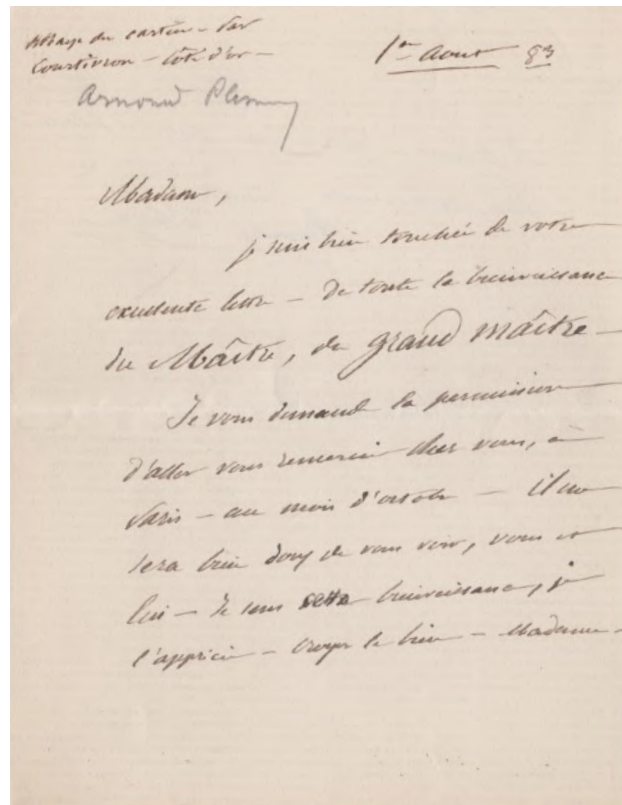 Abbaye du        par
Courtivron – Côte d'or –
1er Aout 83
Armand
Madame,
je suis bien touchée de votre
excellente lettre – de toute la bienveillance
du Maître, du grand maître –
Je vous demande la permission
d'aller vous remercier chez vous, à
Paris – au mois d'octobre – il me
sera bien doux de vous voir, vous et
lui – Je sens cette bienveillance, je
l'apprécie – croyez le bien – Madame –